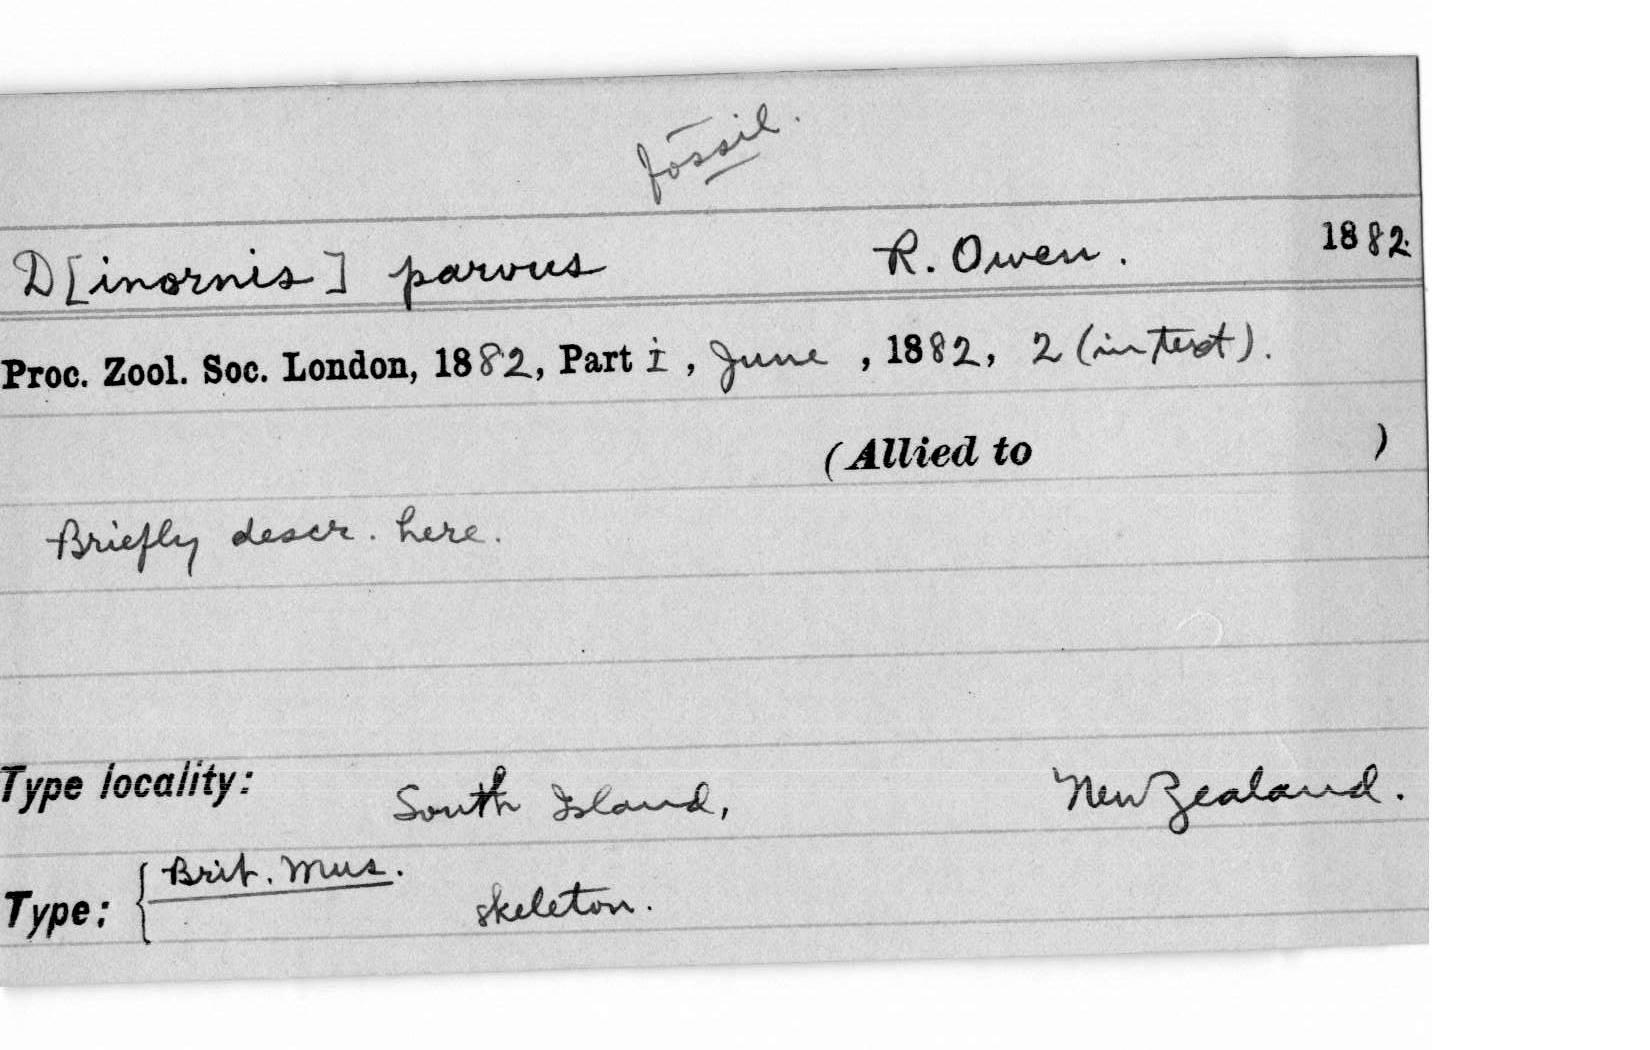 fossil.
D[inornis] parvus R. Owen. 1882.
Proc. Zool. Soc. London, 1882, Part i, June, 1882, 2 (in text).
(Allied to )
Briefly descr. here.
Type locality: South Island, New Zealand.
Brit. Mus.
Type: { skeleton.